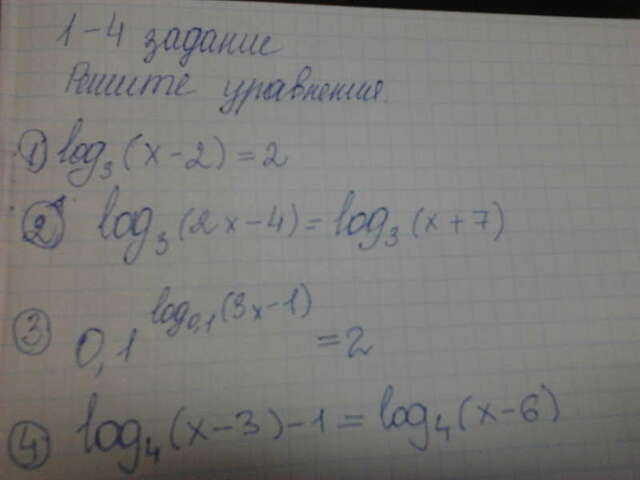 1-4 задание
Решите уравнения.
1) log₃(x-2)=2
2) log₃(2x-4)=log₃(x+7)
3) 0,1^(log₀,₁(3x-1))=2
4) log₄(x-3)-1=log₄(x-6)